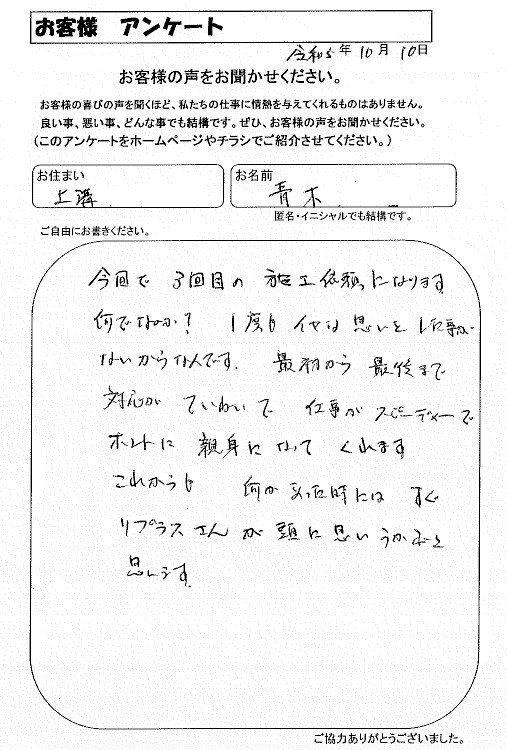 お客様 アンケート
令和5年10月10日
お客様の声をお聞かせください。
お客様の喜びの声を聞くほど、私たちの仕事に情熱を与えてくれるものはありません。
良い事、悪い事、どんな事でも結構です。ぜひ、お客様の声をお聞かせください。
(このアンケートをホームページやチラシでご紹介させてください。)
お住まい
上溝
お名前
青木
匿名・イニシャルでも結構です。
ご自由にお書きください。
今回で 3回目の 施工依頼になります
何でなのか? 1度も イヤな思いをした事が
ないからなんです. 最初から 最後まで
対応が ていねいで 仕事が スピーディーで
ホントに 親身になって くれます
これからも 何か あった時には すぐ
リプラスさんが頭に思いうかぶと
思います.
ご協力ありがとうございました。